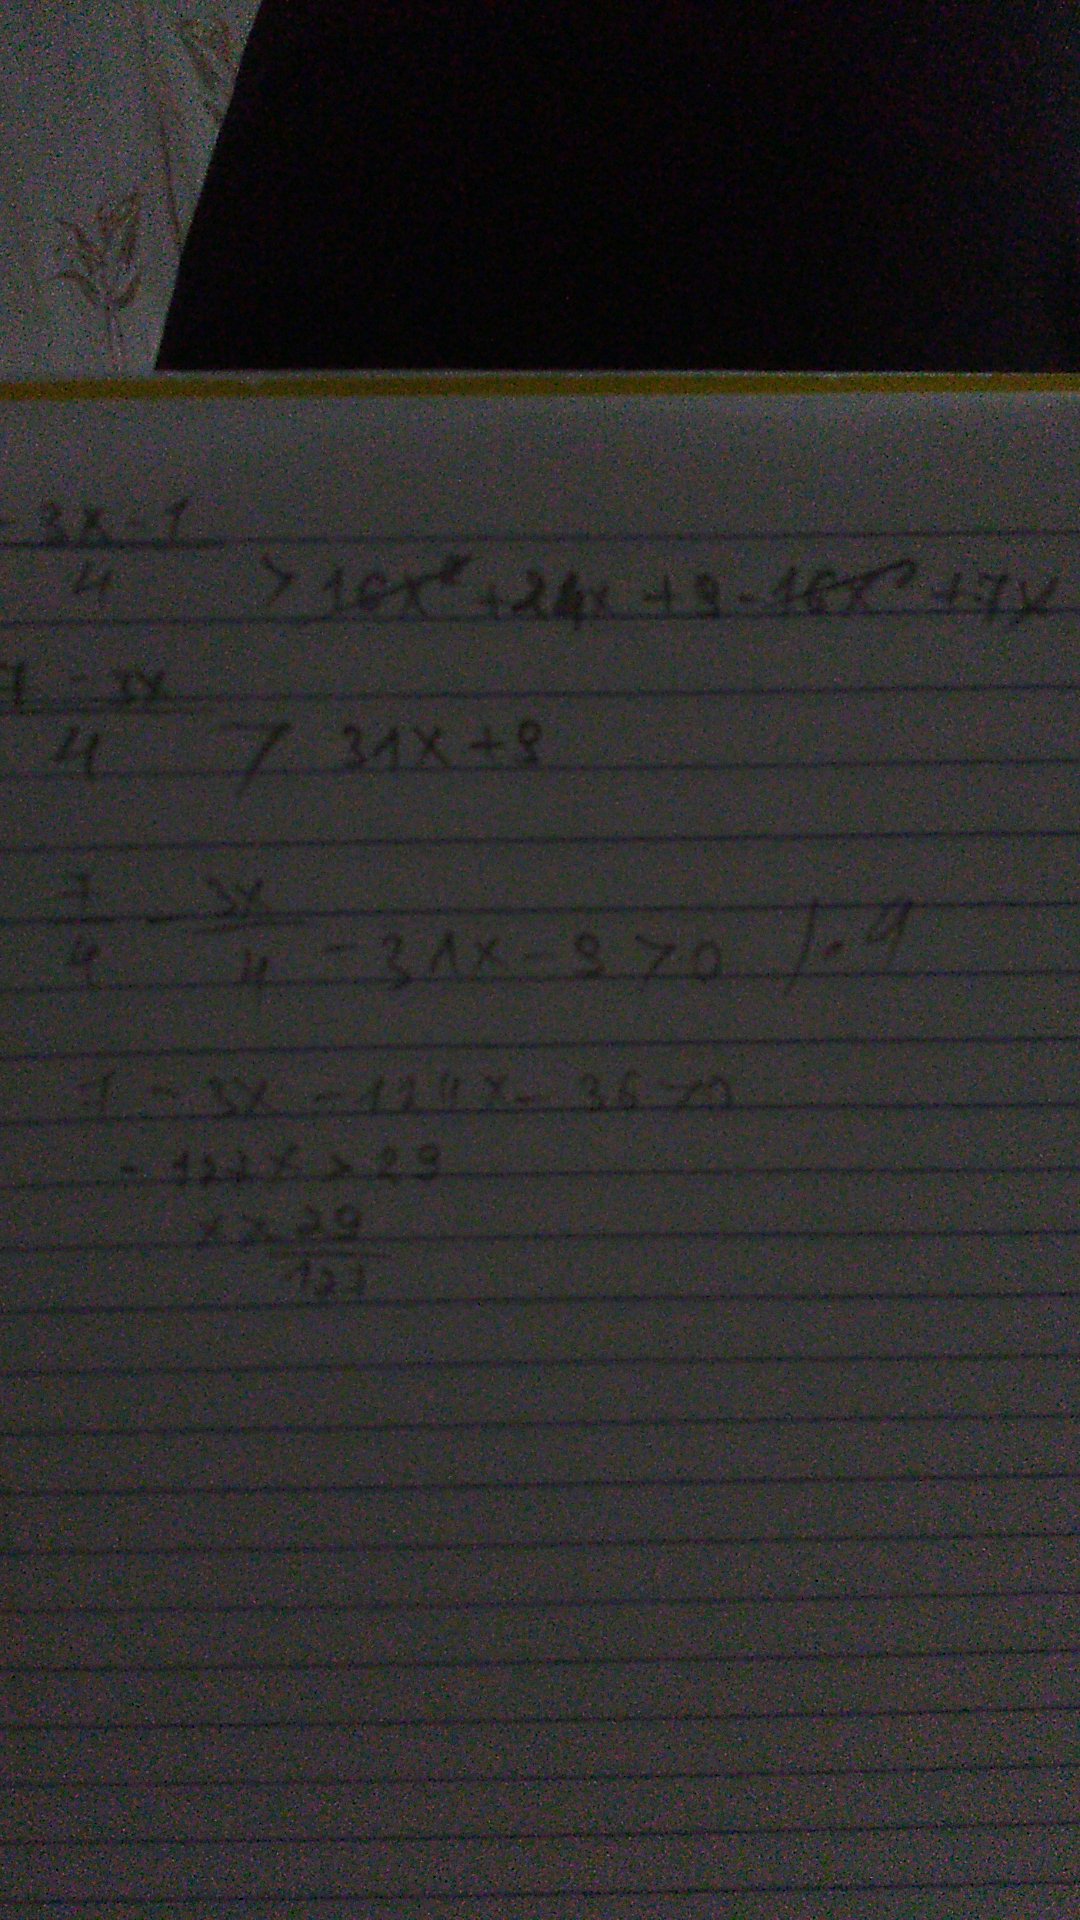 - 3x - 1
4 > 16x² + 24x + 9 - 16x² + 7x
7 - 3x
4 > 31x + 9
7/4 - 3x/4 - 31x - 9 > 0 / · 4
7 - 3x - 124x - 36 > 0
- 127x > 29
x > 29/127